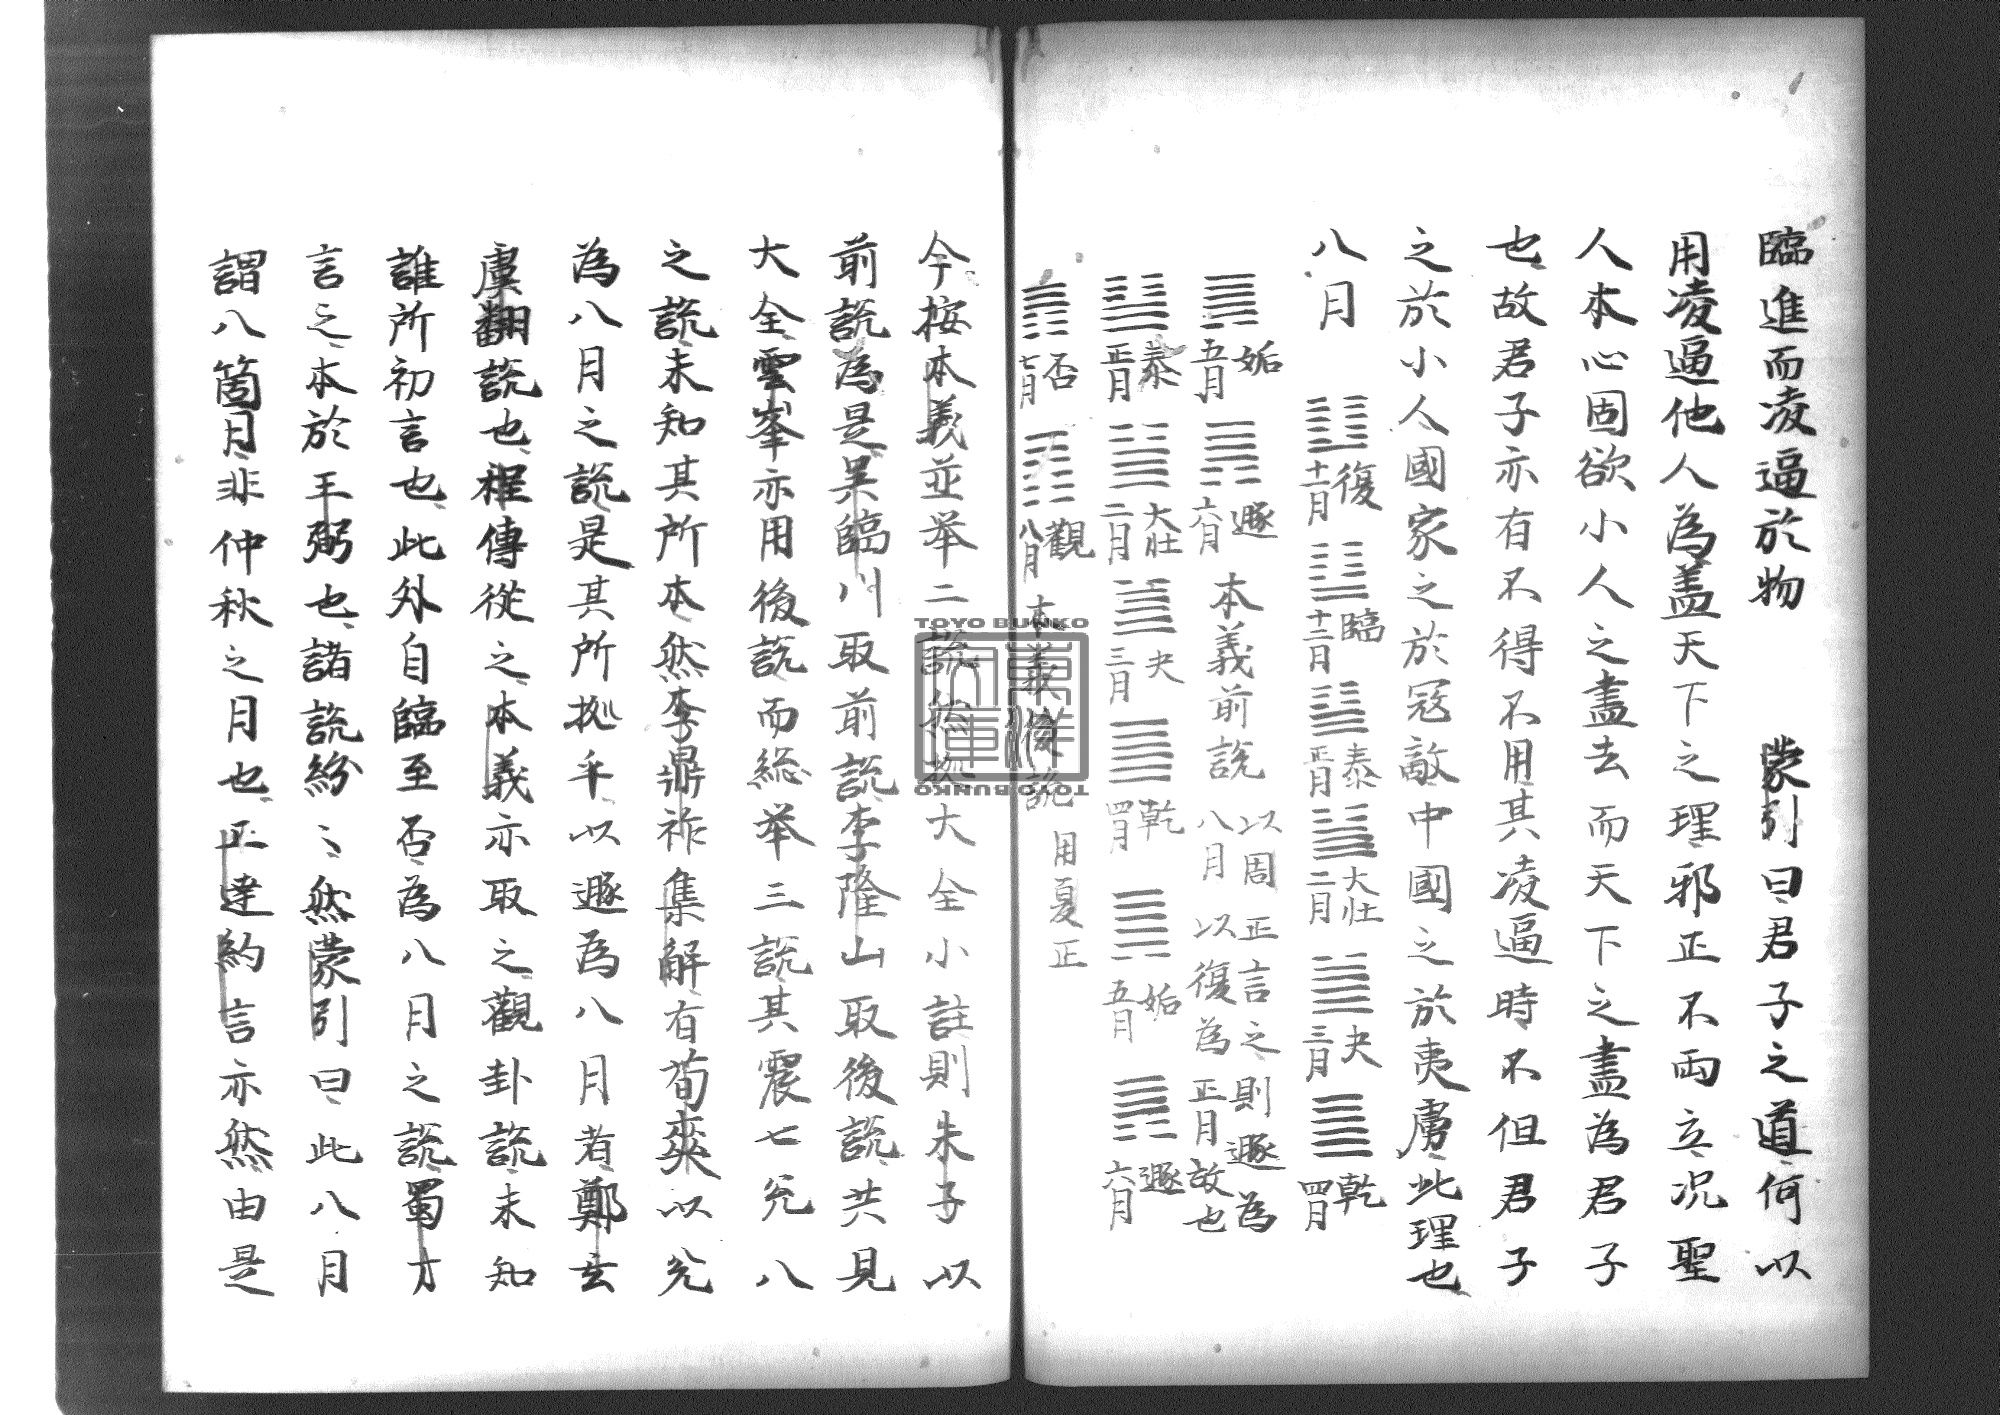 臨進而凌逼於物　蒙引曰君子之道何以
用凌逼他人為盖天下之理邪正不両立況聖
人本心固欲小人之盡去而天下之盡為君子
也故君子亦有不得不用其凌逼時不但君子
之於小人國家之於冦敵中國之於夷虜此理也
八月　復十一月　臨十二月　泰正月　大壮二月　夬三月　乾四月
姤五月　遯六月　本義前説　以周正言之則遯為八月以復為正月故也
泰正月　大壮二月　夬三月　乾四月　姤五月　遯六月
否七月　觀八月　本義後説　用夏正
今按本義並举二説然拠大全小註則朱子以
前説為是呉臨川取前説李隆山取後説共見
大全雲峯亦用後説而総举三説其震七兊八
之説未知其所本然李鼎祚集解有荀爽以兊
為八月之説是其所拠乎以遯為八月者鄭玄
虞翻説也程傳從之本義亦取之觀卦説未知
誰所初言也此外自臨至否為八月之説蜀才
言之本於王弼也諸説紛〻然蒙引曰此八月
謂八箇月非仲秋之月也丘達約言亦然由是
TOYO BUNKO
TOYO BUNKO